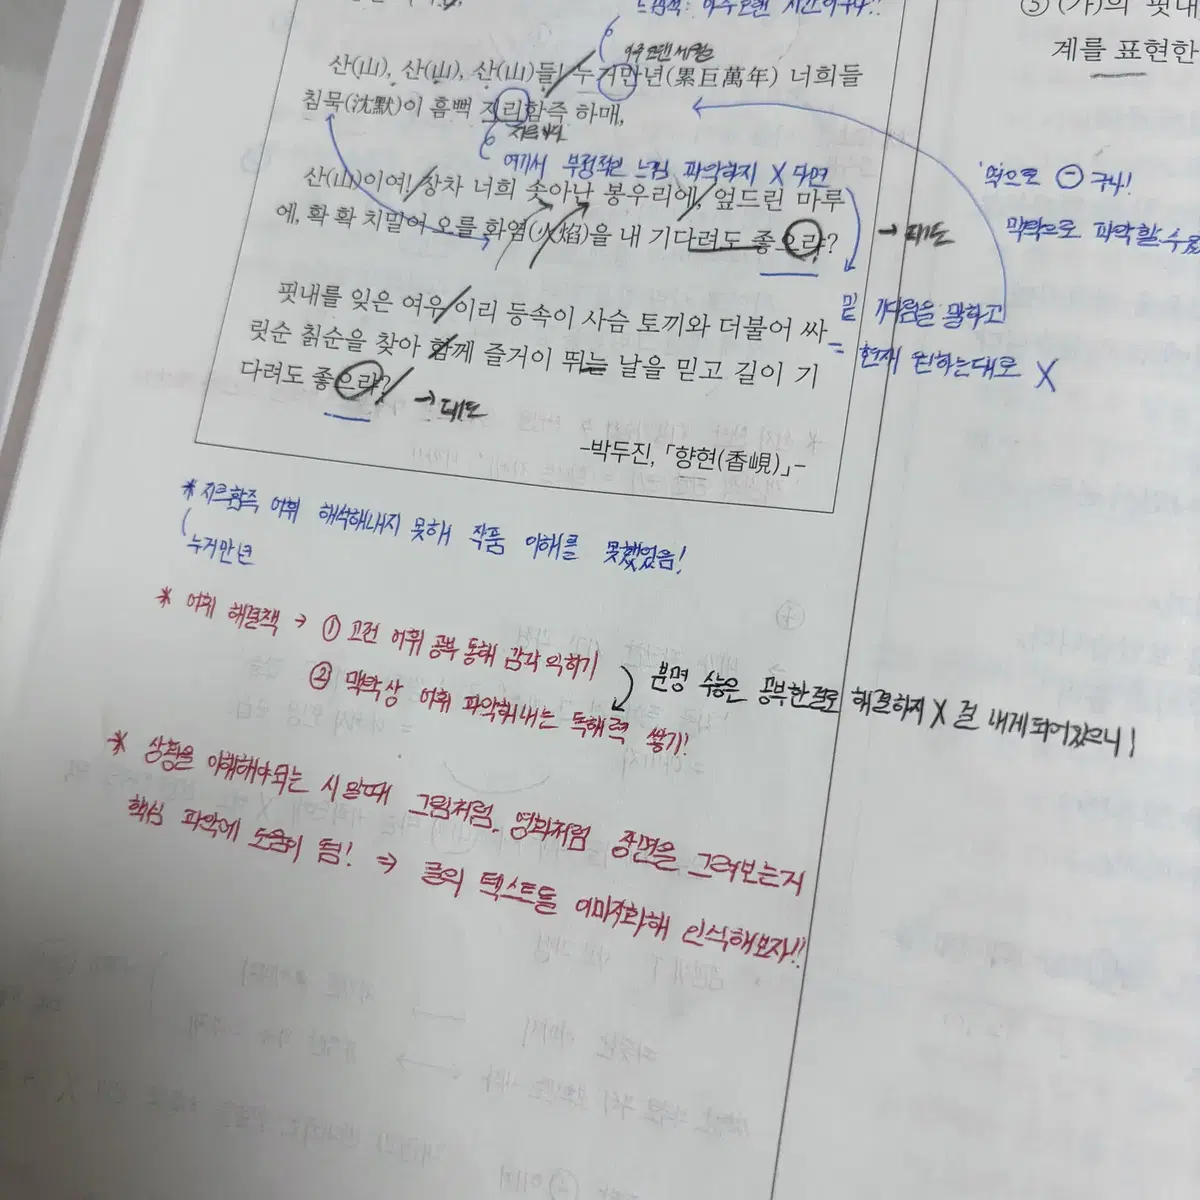 느낌적: 아주 오랜 시간이구나!!
⑤ (가)의 핏내
계를 표현한
아주 오랜 세월
산(山), 산(山), 산(山)들! 누거만년(累巨萬年) 너희들
침묵(沈默)이 흠뻑 지리함즉 하매,
여기서 부정적인 느낌 파악하지 X 다면
산(山)이여! 장차 너희 솟아난 봉우리에, 엎드린 마루
에, 확 확 치밀어 오를 화염(火焰)을 내 기다려도 좋으랴?
→ 태도
맥락으로 파악할 수
핏내를 잊은 여우 이리 등속이 사슴 토끼와 더불어 싸
릿순 칡순을 찾아 함께 즐거이 뛰는 날을 믿고 길이 기
다려도 좋으랴?
→ 태도
밑 기다림을 말하고
= 현재 원하는대로 X
-박두진, 「향현(香峴)」-
* 지르함즉 어휘 해석해내지 못해 작품 이해를 못했었음!
누거만년
* 어휘 해결책 → ① 고전 어휘 공부 통해 감각 익히기
② 맥락상 어휘 파악해내는 독해력 쌓기!
분명 수능은 공부한걸로 해결하지 X 걸 내게 되어있으니!
* 상황을 이해해야되는 시 일때 그림처럼, 영화처럼 장면을 그려보는지
핵심 파악에 도움이 됨! ⇒ 글의 텍스트들 이미지화해 인식해보자!!